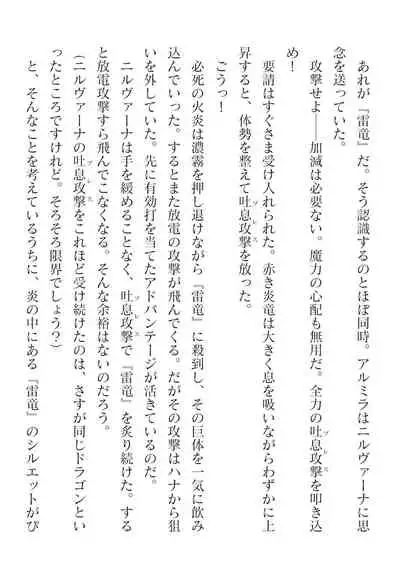 あれが『雷竜』だ。そう認識するのとほぼ同時。アルミラはニルヴァーナに思
念を送っていた。
攻撃せよ――加減は必要ない。魔力の心配も無用だ。全力の吐息攻撃を叩き込
め！
要請はすぐさま受け入れられた。赤き炎竜は大きく息を吸いながらわずかに上
昇すると、体勢を整えて吐息攻撃を放った。
ごうっ！
必死の火炎は濃霧を押し退けながら『雷竜』に殺到し、その巨体を一気に飲み
込んでいった。するとまた放電の攻撃が飛んでくる。だがその攻撃はハナから狙
いを外していた。先に有効打を当てたアドバンテージが活きているのだ。
ニルヴァーナは手を緩めることなく、吐息攻撃で『雷竜』を炙り続けた。する
と放電攻撃すら飛んでこなくなる。そんな余裕はないのだろう。
（ニルヴァーナの吐息攻撃をこれほど受け続けたのは、さすが同じドラゴンとい
ったところですけれど。そろそろ限界でしょう？）
と、そんなことを考えているうちに、炎の中にある『雷竜』のシルエットがぴ